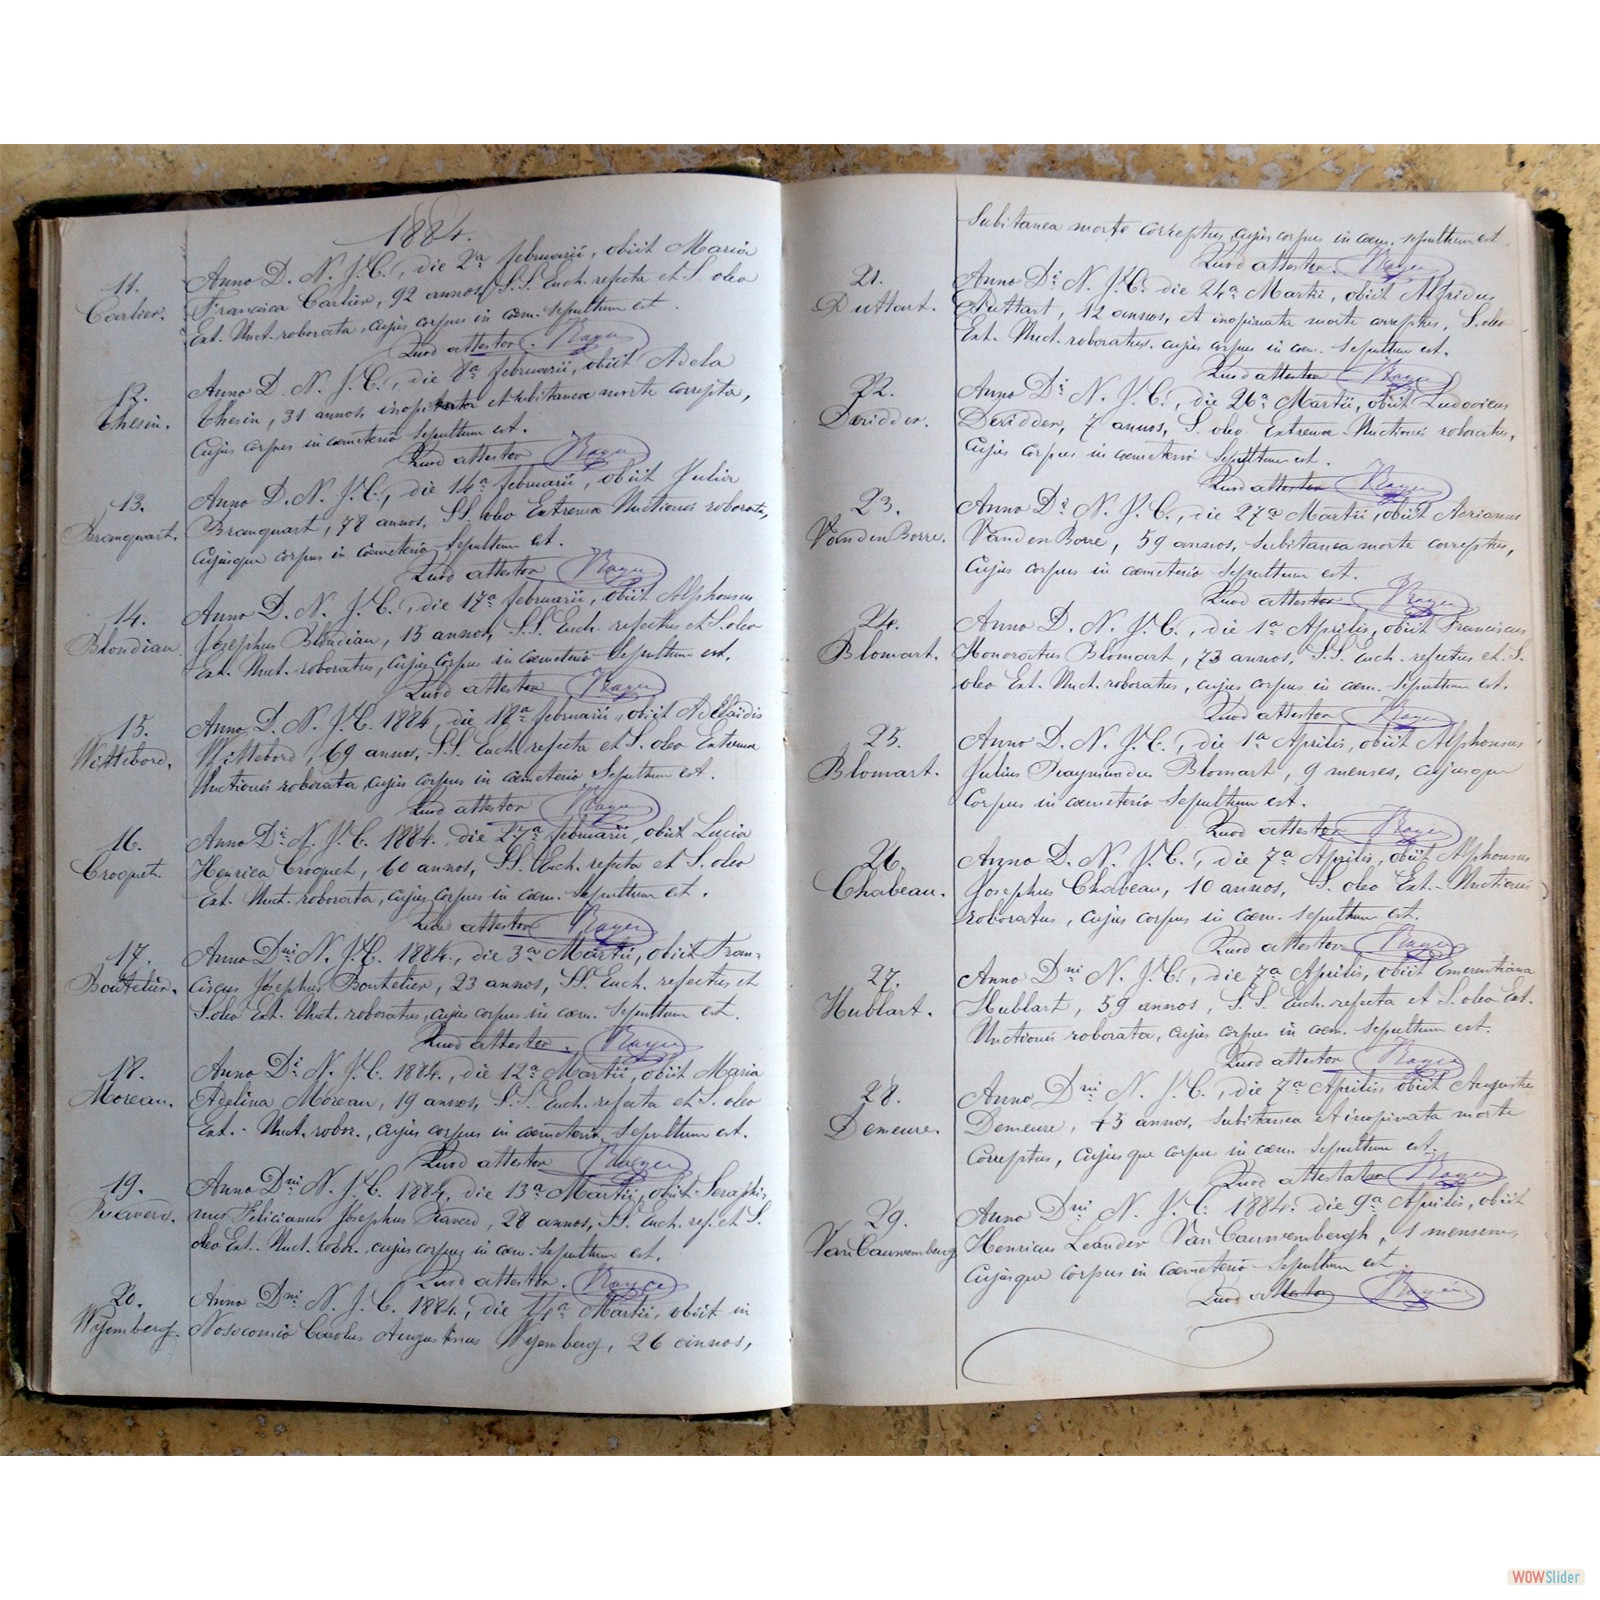 1884.
11. Carlier.
Anno D. N. J. C., die 2ª februarii, obiit Maria
Francisca Carlier, 92 annos, S.S. Euch. refecta et S. oleo
Ext. Unct. roborata, cujus corpus in cœm. sepultum est.
Quod attestor.
12. Cherin.
Anno D. N. J. C., die 8ª februarii, obiit Adela
Cherin, 31 annos, et subitanea morte correpta,
Cujus corpus in cœmeterio Sepultum est.
Quod attestor
13. Branquart.
Anno D. N. J. C., die 14ª februarii, obiit Julia
Branquart, 78 annos, SS. oleo Extremæ Unctionis roborata,
Cujusque corpus in cœmeterio sepultum est.
Quod attestor
14. Blondiau.
Anno D. N. J. C., die 17ª februarii, obiit Alphonsus
Josephus Blondiau, 15 annos, S.S. Euch. refectus et S. oleo
Ext. Unct. roboratus, cujus corpus in cœmeterio Sepultum est.
Quod attestor
15. Wittebord.
Anno D. N. J. C. 1884, die 18ª februarii, obiit Adelaïdis
Wittebord, 69 annos, S.S. Euch. refecta et S. oleo Extremæ
Unctionis roborata cujus corpus in cœmeterio Sepultum est.
Quod attestor
16. Croquet.
Anno Di N. J. C. 1884. die 27ª februarii, obiit Lucia
Henrica Croquet, 60 annos, SS. Euch. refecta et S. oleo
Ext. Unct. roborata, cujus corpus in cœm. Sepultum est.
Quod attestor
17. Boutelier.
Anno Dni N. J. C. 1884., die 3ª Martii, obiit Fran-
ciscus Josephus Boutelier, 23 annos, SS. Euch. refectus et
S. oleo Ext. Unct. roboratus, cujus corpus in cœm. Sepultum est.
Quod attestor.
18. Moreau.
Anno Di N. J. C. 1884., die 12ª Martii, obiit Maria
Adelina Moreau, 19 annos, S.S. Euch. refecta et S. oleo
Ext. Unct. robor., cujus corpus in cœmeterio Sepultum est.
Quod attestor
19.
Anno Dni N. J. C. 1884, die 13ª Martii, obiit Seraphi-
nus Felicianus Josephus 28 annos, SS. Euch. ref. et S.
oleo Ext. Unct. robor., cujus corpus in cœm. Sepultum est.
Quod attestor.
20. Wyemberg.
Anno Dni N. J. C. 1884., die 14ª Martii, obiit in
Nosocomio Carolus Augustinus Wyemberg, 26 annos,
Subitanea morte correptus, cujus corpus in cœm. sepultum est.
Quod attestor.
21. Duttart.
Anno Di N. J. C. die 24ª Martii, obiit Alfridus
Duttart, 12 annos, et inopinata morte correptus, S. oleo
Ext. Unct. roboratus. cujus corpus in cœm. Sepultum est.
Quod attestor
22. Deridder.
Anno Di N. J. C., die 26ª Martii, obiit Ludovicus
Deridder, 7 annos, S. oleo Extremæ Unctionis roboratus,
Cujus corpus in cœmeterio Sepultum est.
Quod attestor
23. Vanden Borre.
Anno Di N. J. C., die 27ª Martii, obiit Adrianus
Vanden Borre, 59 annos, Subitanea morte correptus,
Cujus corpus in cœmeterio Sepultum est.
Quod attestor
24. Blomart.
Anno D. N. J. C., die 1ª Aprilis, obiit Franciscus
Honoratus Blomart, 73 annos, S.S. Euch. refectus et S.
oleo Ext. Unct. roboratus, cujus corpus in cœm. Sepultum est.
Quod attestor
25. Blomart.
Anno D. N. J. C., die 1ª Aprilis, obiit Alphonsus
Julius Raymundus Blomart, 9 menses, cujusque
Corpus in cœmeterio Sepultum est.
Quod attestor
26. Chabeau.
Anno D. N. J. C., die 7ª Aprilis, obiit Alphonsus
Josephus Chabeau, 10 annos, S. oleo Ext. Unctionis
roboratus, cujus corpus in cœm. sepultum est.
Quod attestor
27. Hublart.
Anno Dni N. J. C., die 7ª Aprilis, obiit Emerentiana
Hublart, 59 annos, S.S. Euch. refecta et S. oleo Ext.
Unctionis roborata, cujus corpus in cœm. Sepultum est.
Quod attestor
28. Demeure.
Anno Dni N. J. C., die 7ª Aprilis, obiit
Demeure, annos, Subitanea et inopinata morte
Correptus, Cujusque corpus in cœm. Sepultum est.
Quod attestor
29. Van Cauwembergh
Anno Dni N. J. C. 1884. die 9ª Aprilis, obiit
Henricus Leander Van Cauwembergh, 1 mensem,
Cujusque corpus in cœmeterio Sepultum est
Quod attestor
WOWSlider